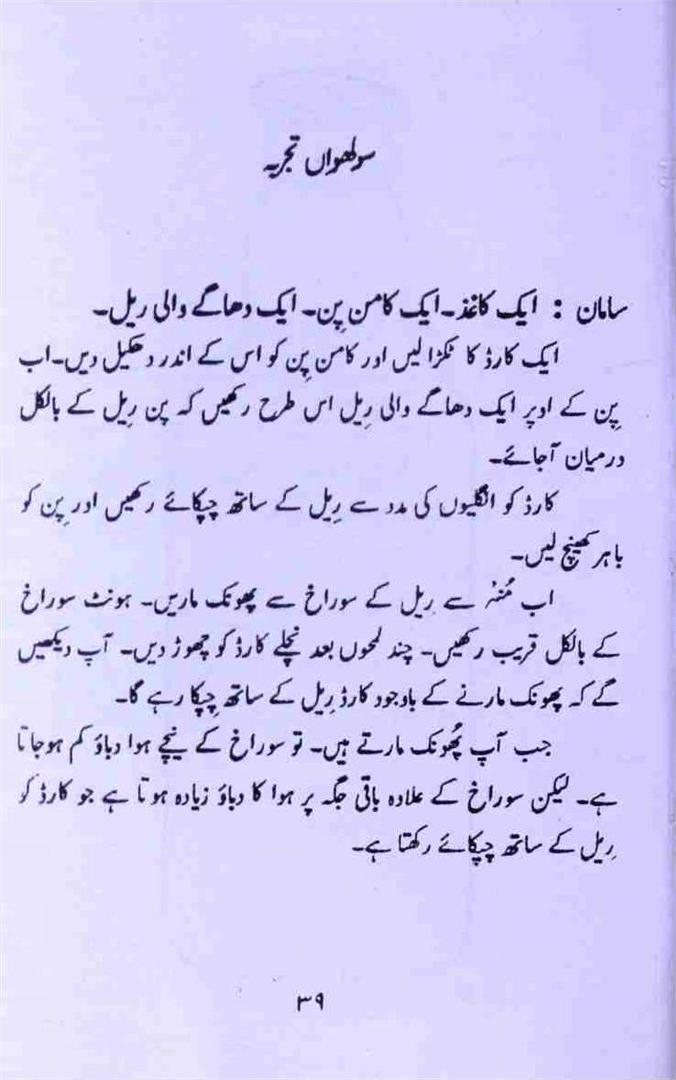 سولھواں تجربہ
سامان : ایک کاغذ۔ ایک کامن پِن۔ ایک دھاگے والی ریل۔
ایک کارڈ کا ٹکڑا لیں اور کامن پِن کو اس کے اندر دھکیل دیں۔ اب
پِن کے اوپر ایک دھاگے والی رِیل اس طرح رکھیں کہ پن ریل کے بالکل
درمیان آجائے۔
کارڈ کو انگلیوں کی مدد سے رِیل کے ساتھ چپکائے رکھیں اور پِن کو
باہر کھینچ لیں۔
اب مُنہ سے رِیل کے سوراخ سے پھونک ماریں۔ ہونٹ سوراخ
کے بالکل قریب رکھیں۔ چند لمحوں بعد نچلے کارڈ کو چھوڑ دیں۔ آپ دیکھیں
گے کہ پھونک مارنے کے باوجود کارڈ رِیل کے ساتھ چِپکا رہے گا۔
جب آپ پُھونک مارتے ہیں۔ تو سوراخ کے نیچے ہوا دباؤ کم ہوجاتا
ہے۔ لیکن سوراخ کے علاوہ باقی جگہ پر ہوا کا دباؤ زیادہ ہوتا ہے جو کارڈ کو
رِیل کے ساتھ چپکائے رکھتا ہے۔
۳۹